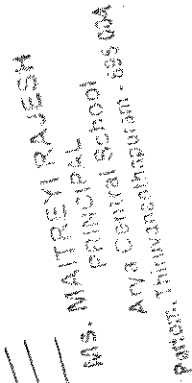 Ms. MAITREYI RAJESH
PRINCIPAL
Arya Central School
Pattom, Thiruvananthapuram - 695 004